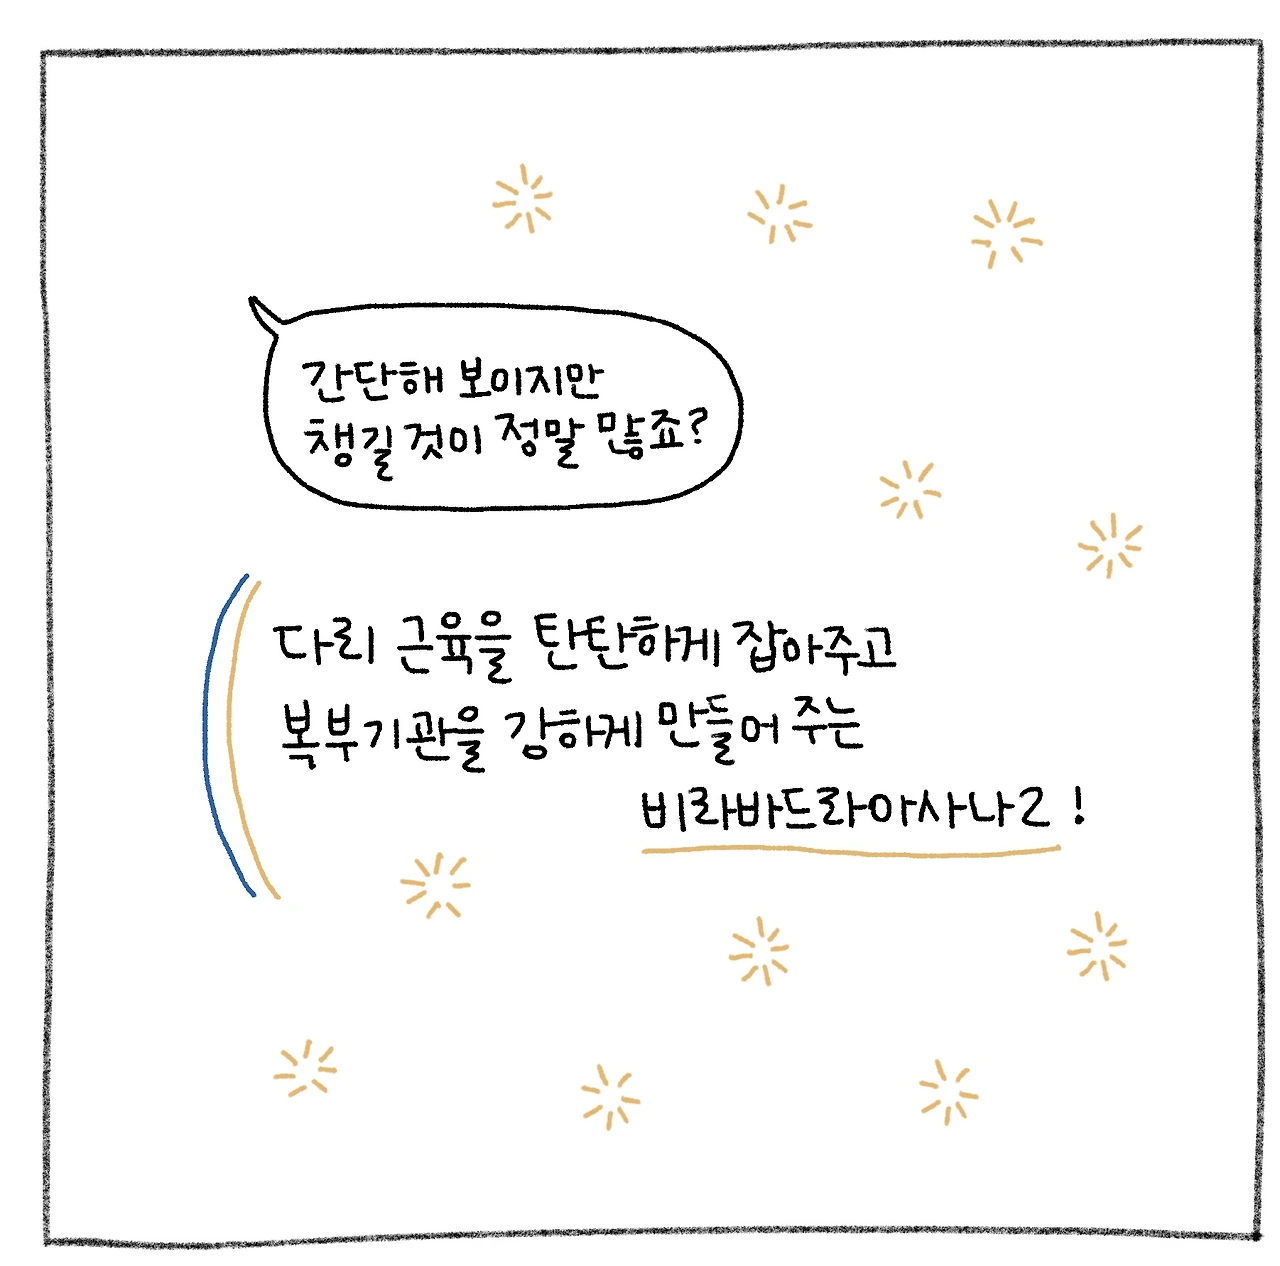 간단해 보이지만
챙길 것이 정말 많죠?
다리 근육을 탄탄하게 잡아주고
복부기관을 강하게 만들어 주는
비라바드라아사나2!